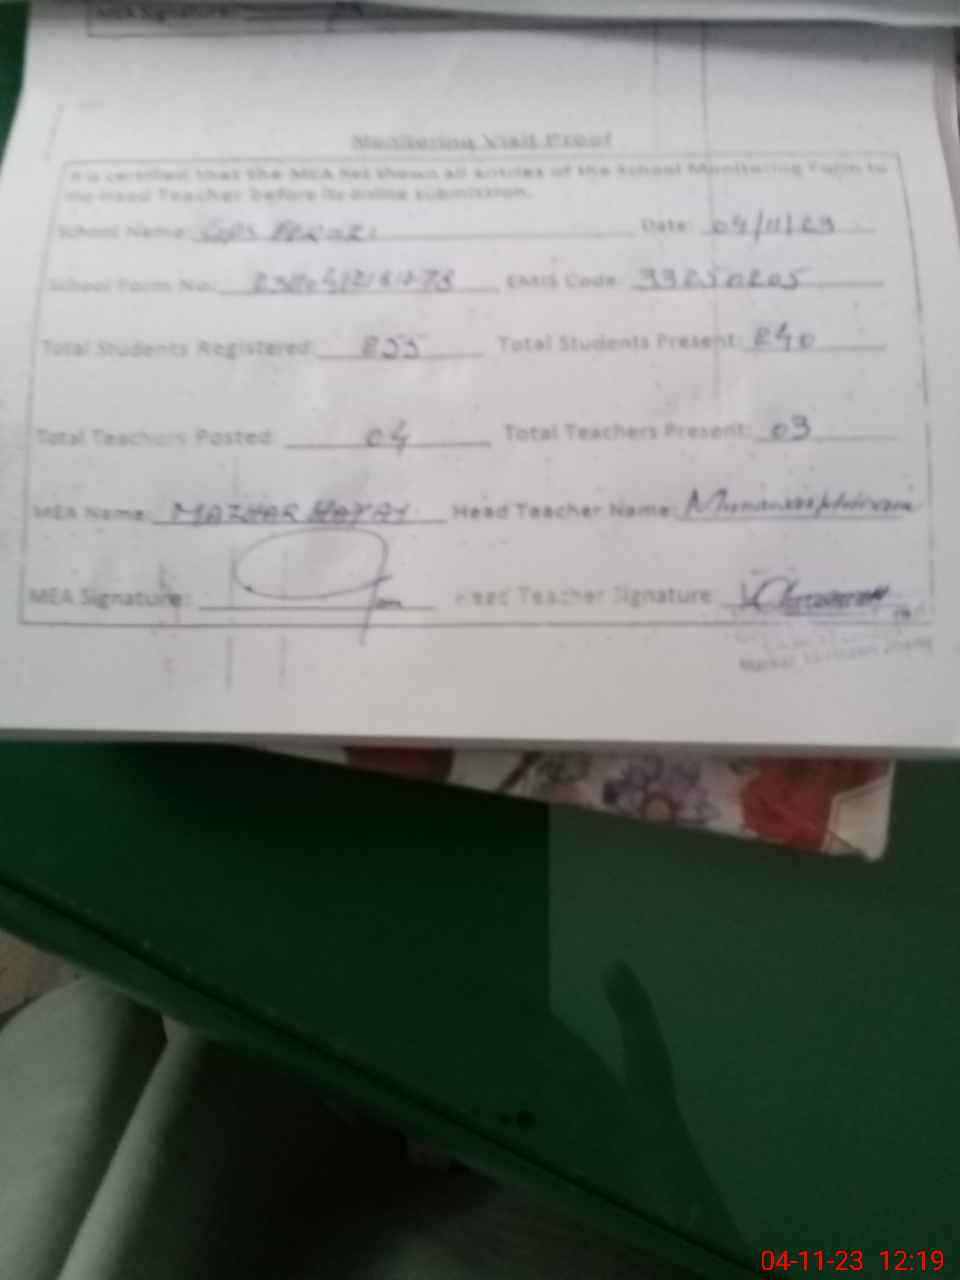 MEA Signature:
Monitoring Visit Proof
It is certified that the MEA has shown all entries of the School Monitoring Form to
the Head Teacher before its online submission.
School Name: GPS Date: 04/11/23
School Form No: EMIS Code: 33250205
Total Students Registered: 255 Total Students Present: 240
Total Teachers Posted: 04 Total Teachers Present: 03
MEA Name: MAZHAR HAYAT Head Teacher Name:
MEA Signature: Head Teacher Signature:
Markaz
04-11-23 12:19